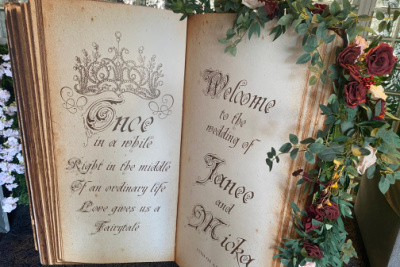 Once
in a while
Right in the middle
Of an ordinary life
Love gives us a
Fairytale
Welcome
to the
wedding of
Janee
and